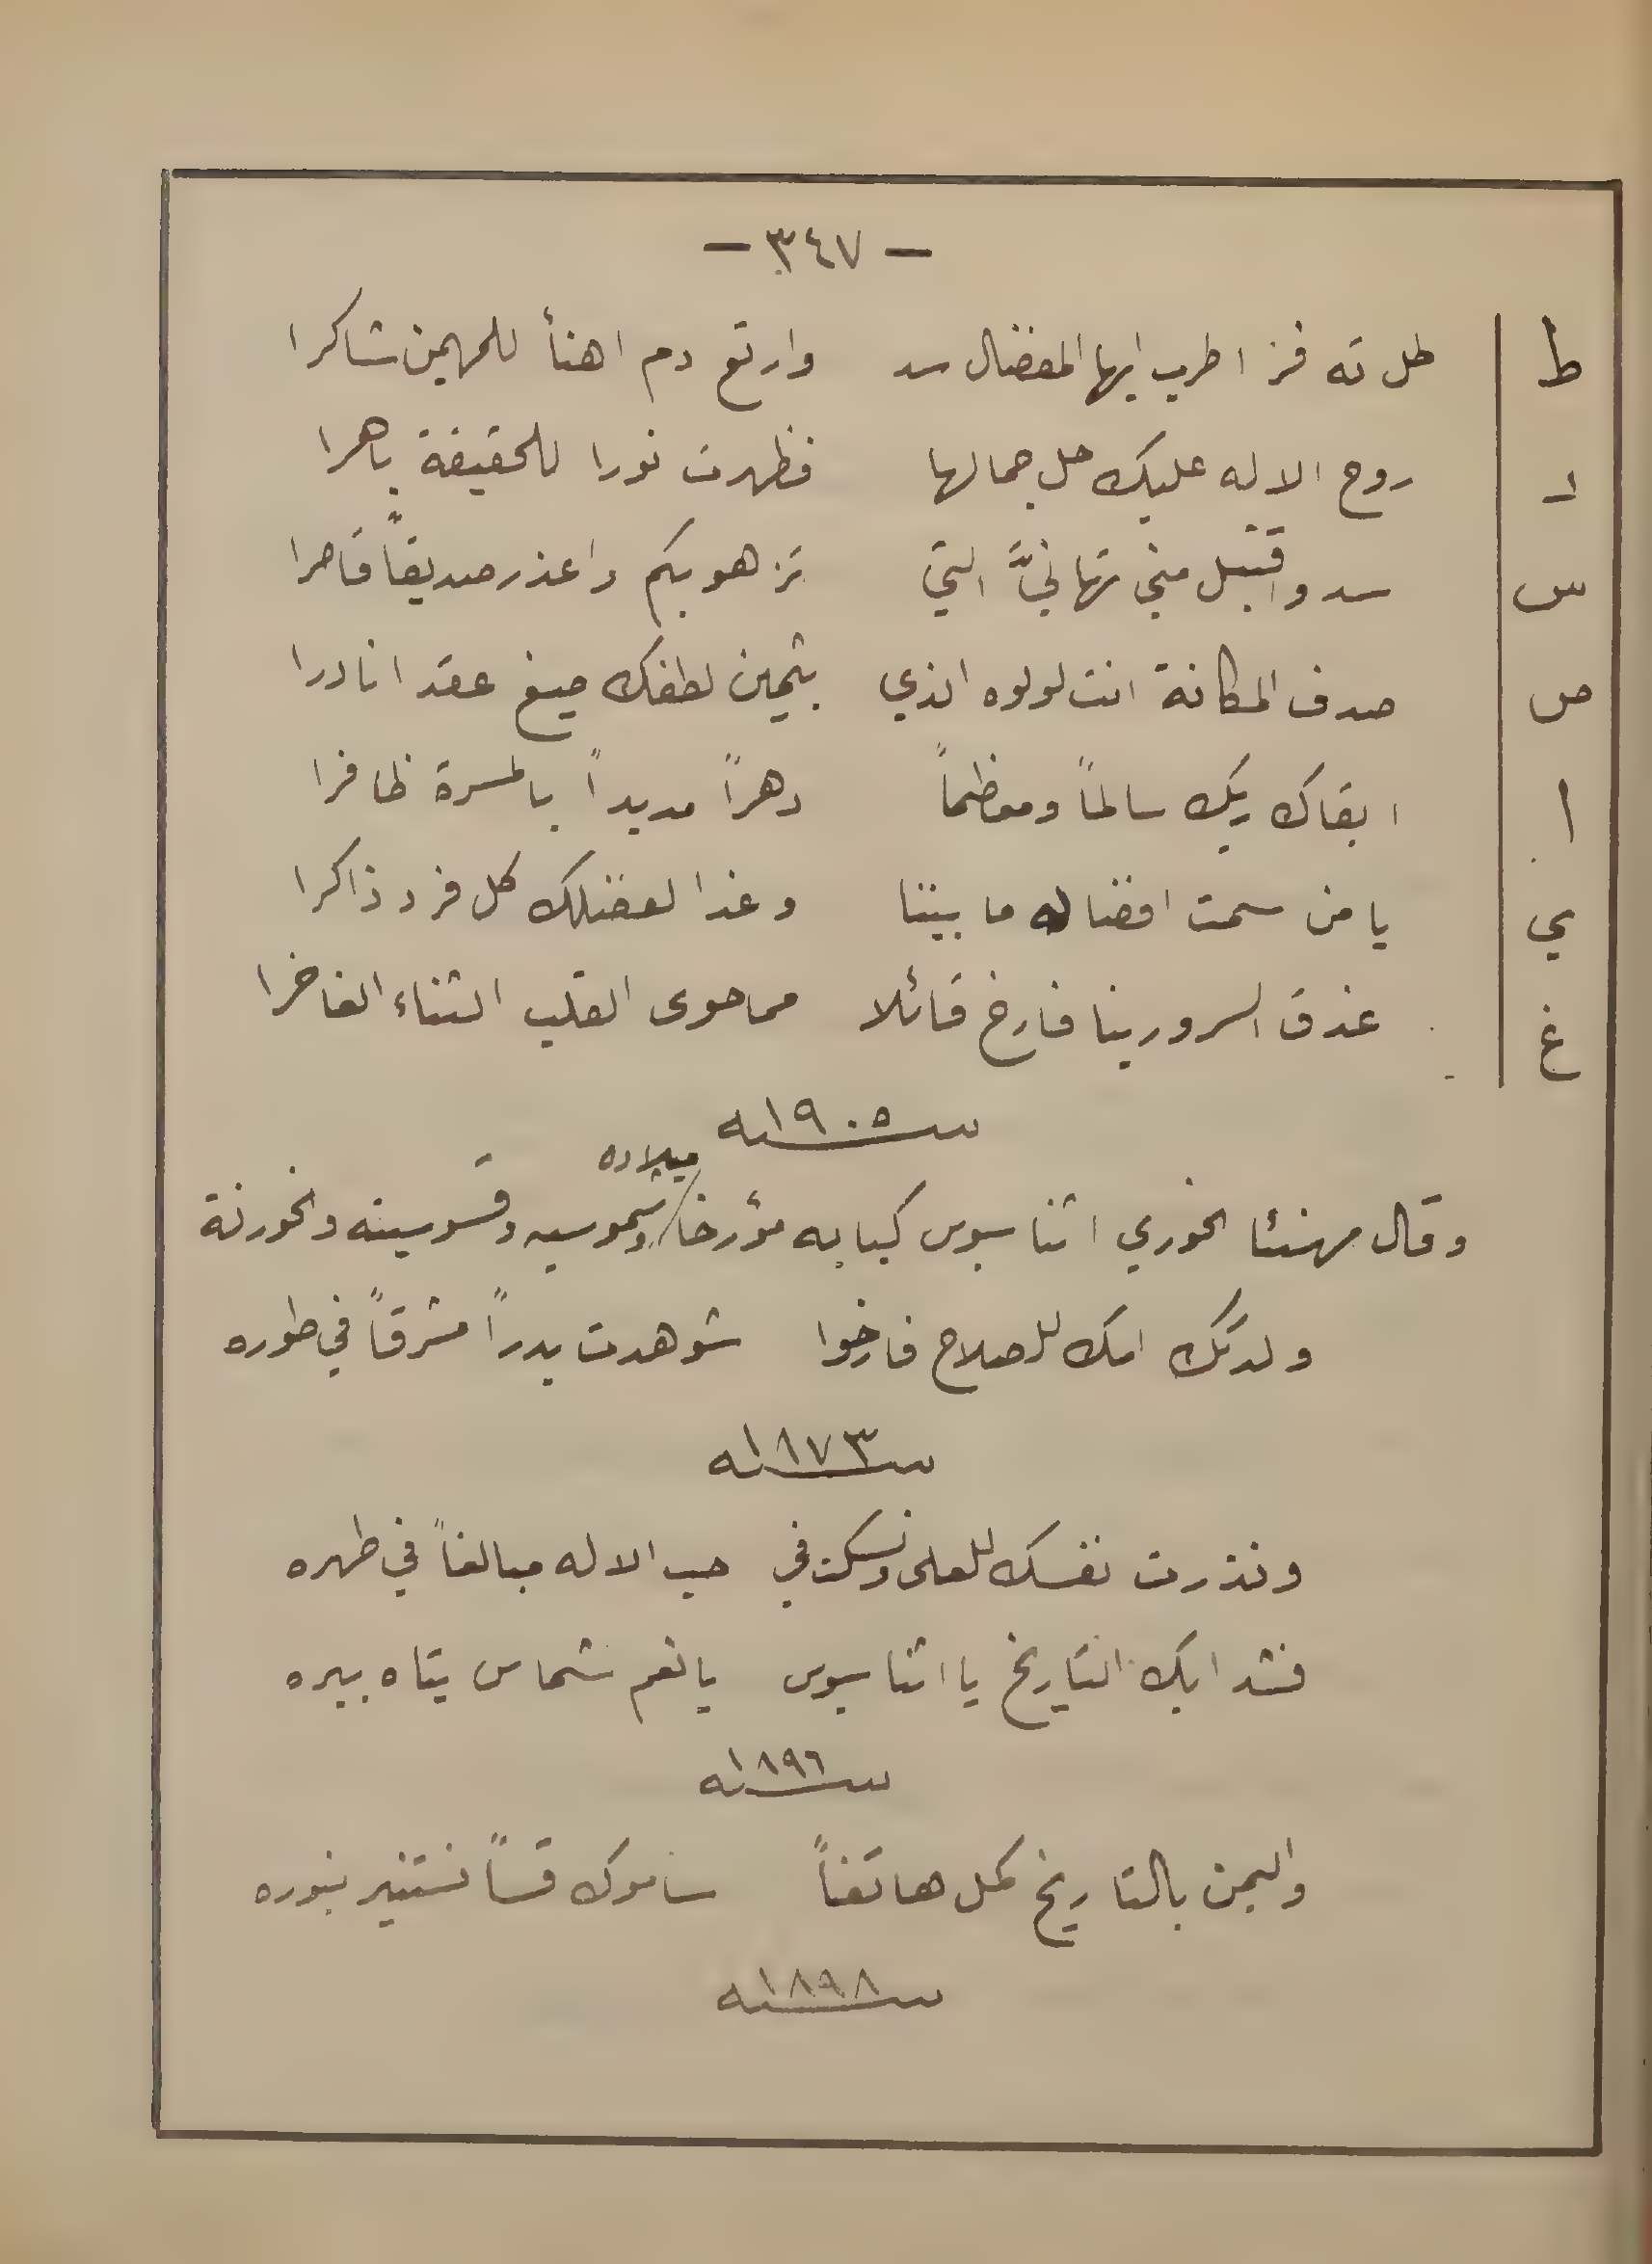 - ٣٤٧ -
ط طل ته فز اطرب ايها المفضال سد وارتع دم اهنأ للمهيمن شاكرا
ر روح الاله عليك حل جمالها فظهرت نورا للحقيقة باهرا
س سد واقتبل مني تهانيَّ التي تزهو بكم واعذر صديقاً قاصرا
ص صدف المكانة انت لولوه الذي بثمين لطفك صيغ عقدا نادرا
ا ابقاك ربك سالماً ومعظماً دهراً مديداً بالمسرة ظافرا
ي يا من سمت افضاله ما بيننا وغدا لفضلك كل فرد ذاكرا
غ غدق السرور بنا فارخ قائلا مما حوى القلب الثناء الفاخرا
سنة ١٩٠٥
وقال مهنئا الخوري اثناسيوس كبابه مؤرخا ميلاده وشموسيه وقسوسيته والخورنة
ولدتك امك للصلاح فارخوا شوهدت بدراً مشرقاً في طوره
سنة ١٨٧٣
ونذرت نفسك للعلى ونسكت في حب الاله مبالغاً في طهره
فشدا بك التاريخ يا اثناسيوس يا نعم شماس يتاه ببره
سنة ١٨٩٦
واليمن بالتاريخ كمل هاتفاً ساموك قساً نستنير بنوره
سنة ١٨٩٨